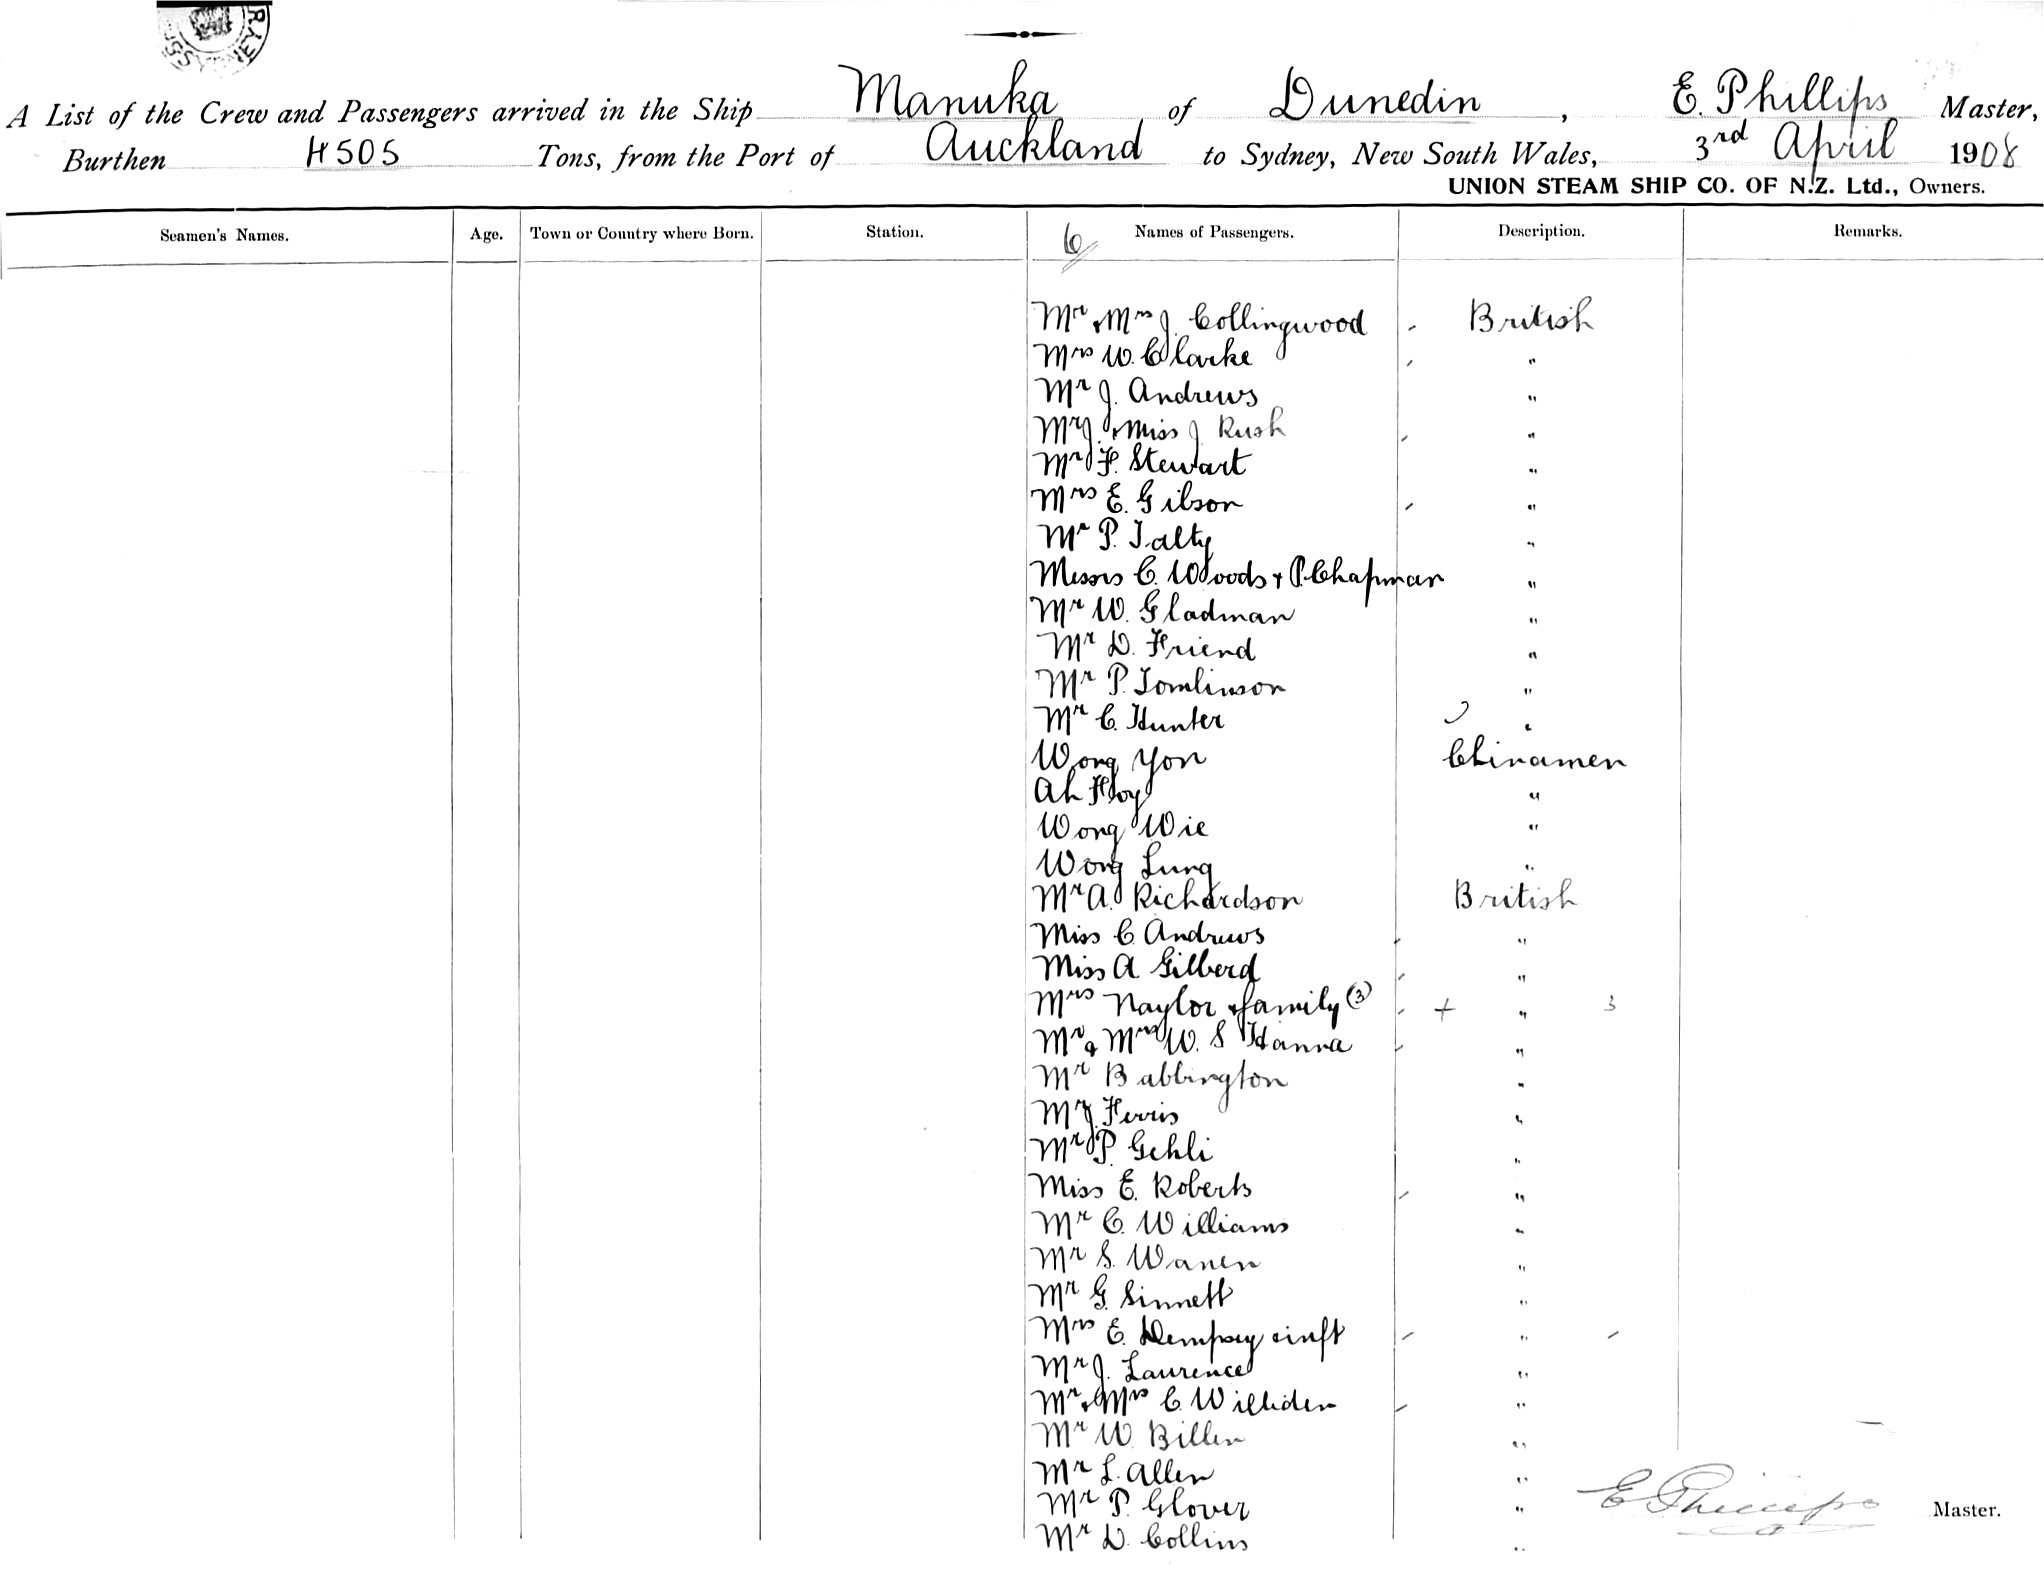 A List of the Crew and Passengers arrived in the Ship Manuka of Dunedin, E. Phillips Master,
Burthen 4505 Tons, from the Port of Auckland to Sydney, New South Wales, 3rd April 1908
UNION STEAM SHIP CO. OF N.Z. Ltd., Owners.
Seamen's Names. Age. Town or Country where Born. Station. 6 Names of Passengers. Description. Remarks.
Mr & Mrs J. Collingwood British
Mrs W. Clarke "
Mr J. Andrews "
Mr J. & Miss J Rush "
Mr F. Stewart "
Mrs E. Gibson "
Mr P. Talty "
Messrs C. Woods & P. Chapman "
Mr W. Gladman "
Mr D. Friend "
Mr P. Tomlinson "
Mr C. Hunter "
Wong Yon Chinamen
Ah Hoy "
Wong Wie "
Wong Lung "
Mr A. Richardson British
Miss C. Andrews "
Miss A Gilberd "
Mrs Naylor & family (3) + " 3
Mr & Mrs W. S Hanna "
Mr Babbington "
Mr J. Ferris "
Mr P. Gehli "
Miss E. Roberts "
Mr C. Williams "
Mr S. Warren "
Mr G. Sinnett "
Mrs E. Dempsey "
Mr J. Laurence "
Mr & Mrs C. "
Mr W. Billen "
Mr L. Allen "
Mr P. Glover "
E Phillips Master.
Mr D. Collins "